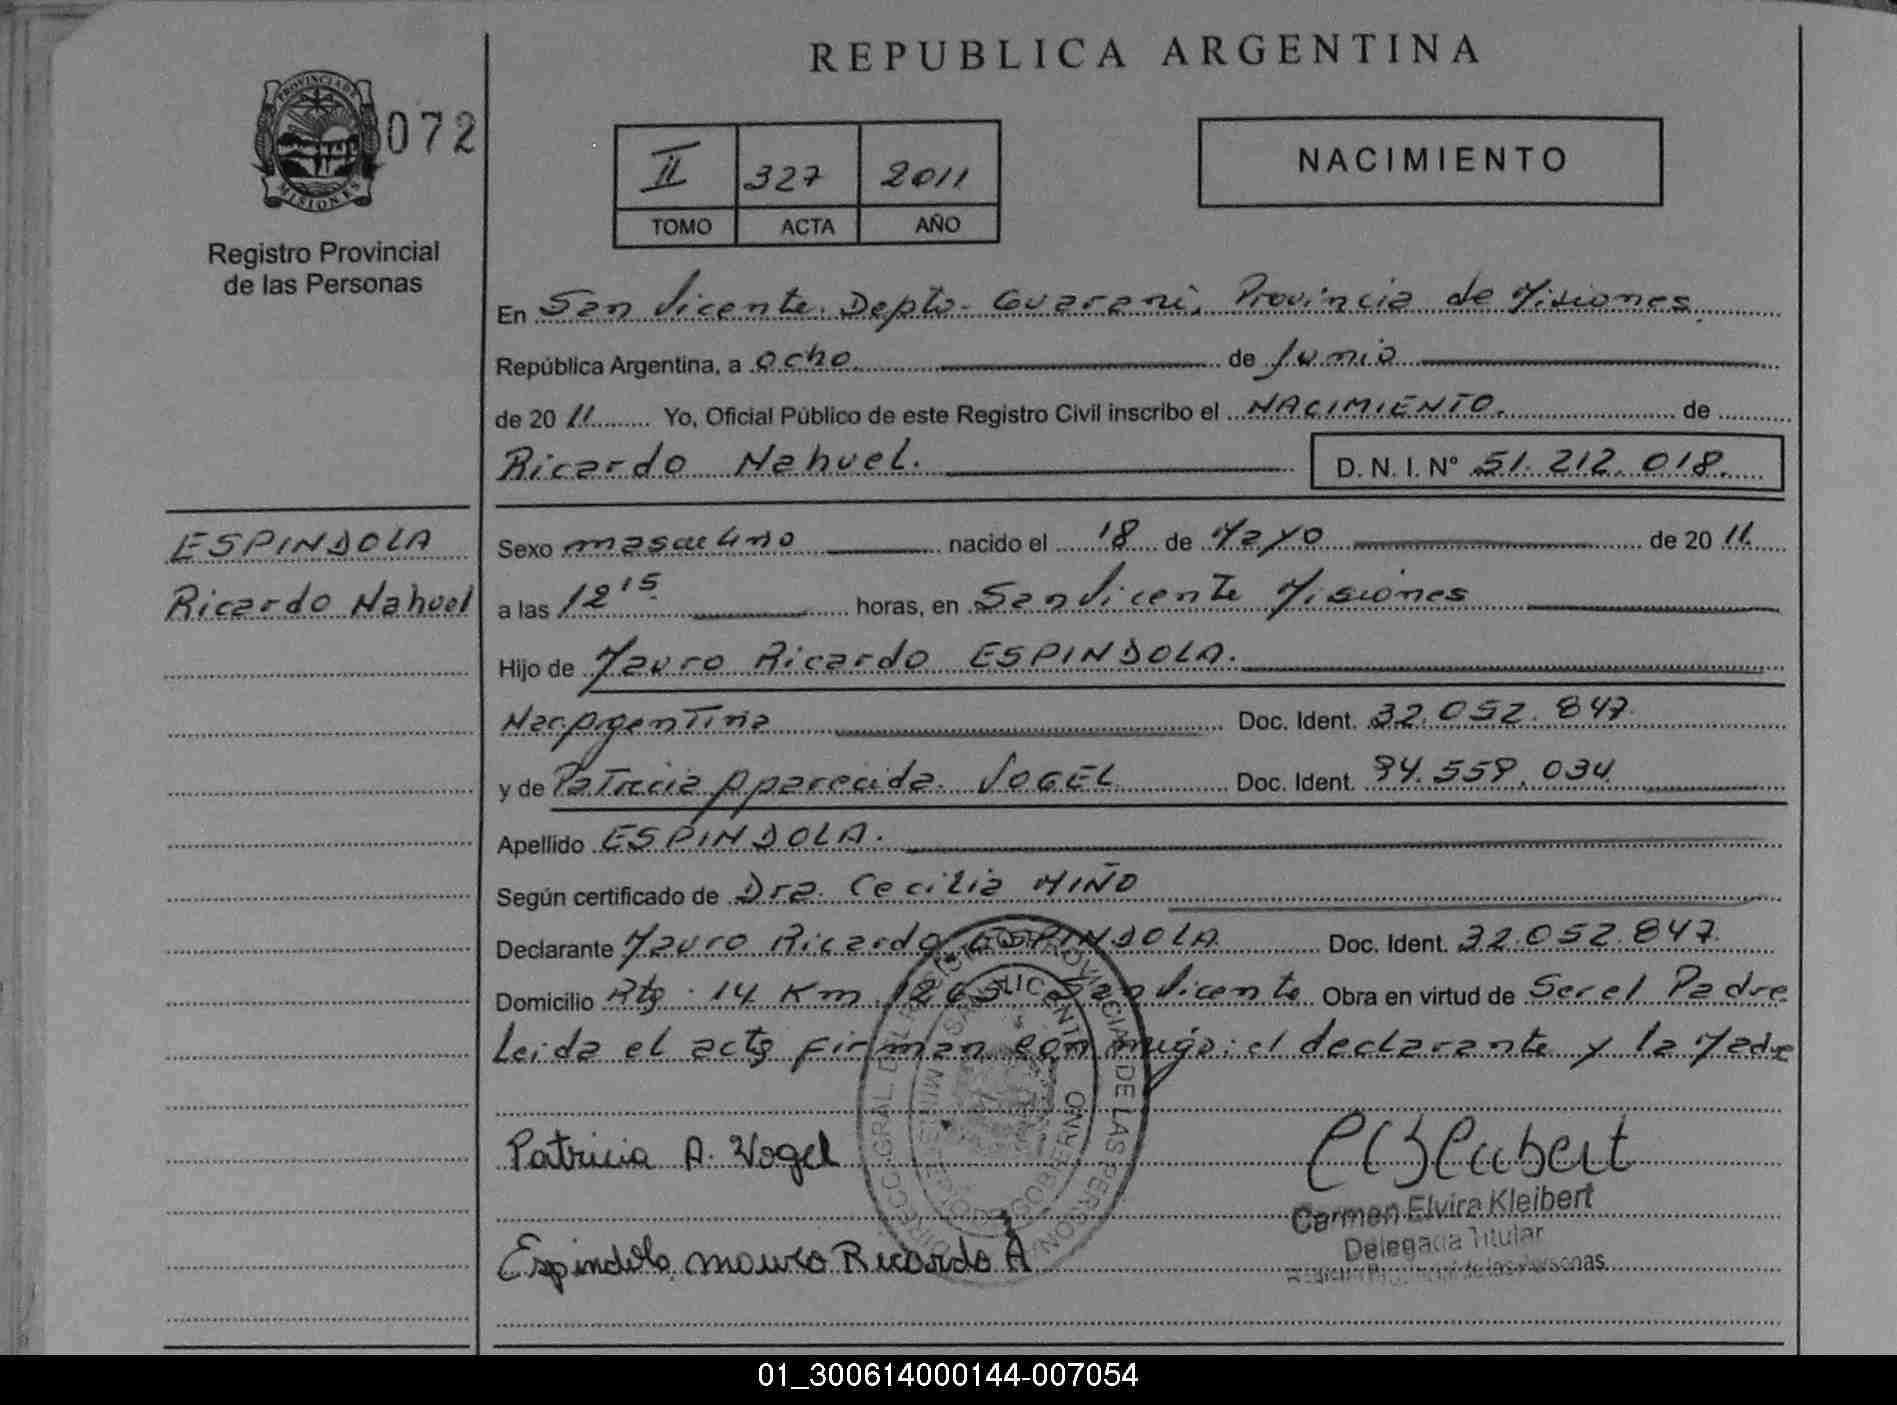 REPUBLICA ARGENTINA
PROVINCIA DE
MISIONES
072
Registro Provincial
de las Personas
II 327 2011
TOMO ACTA AÑO
NACIMIENTO
En San Vicente. Depto. Guaraní, Provincia de Misiones
República Argentina, a ocho de Junio
de 20 11 Yo, Oficial Público de este Registro Civil inscribo el NACIMIENTO. de
Ricardo Nahuel. D. N. I. N° 51.212.018.
ESPINDOLA
Ricardo Nahuel
Sexo masculino nacido el 18 de Mayo de 20 11
a las 12 15 horas, en San Vicente Misiones
Hijo de Mauro Ricardo ESPINDOLA.
Nac. Argentina Doc. Ident. 32.052.847
y de Patricia Aparecida VOGEL Doc. Ident. 94.559.034
Apellido ESPINDOLA.
Según certificado de Dra. Cecilia MIÑO
Declarante Mauro Ricardo ESPINDOLA Doc. Ident. 32.052.847
Domicilio Rta. 14 Km 1265 San Vicente Obra en virtud de Ser el Padre
Leida el acta firman con migo: el declarante y la Madre
Patricia A. Vogel
Carmen Elvira Kleibert
Delegada Titular
Espindola mauro Ricardo A
01_300614000144-007054